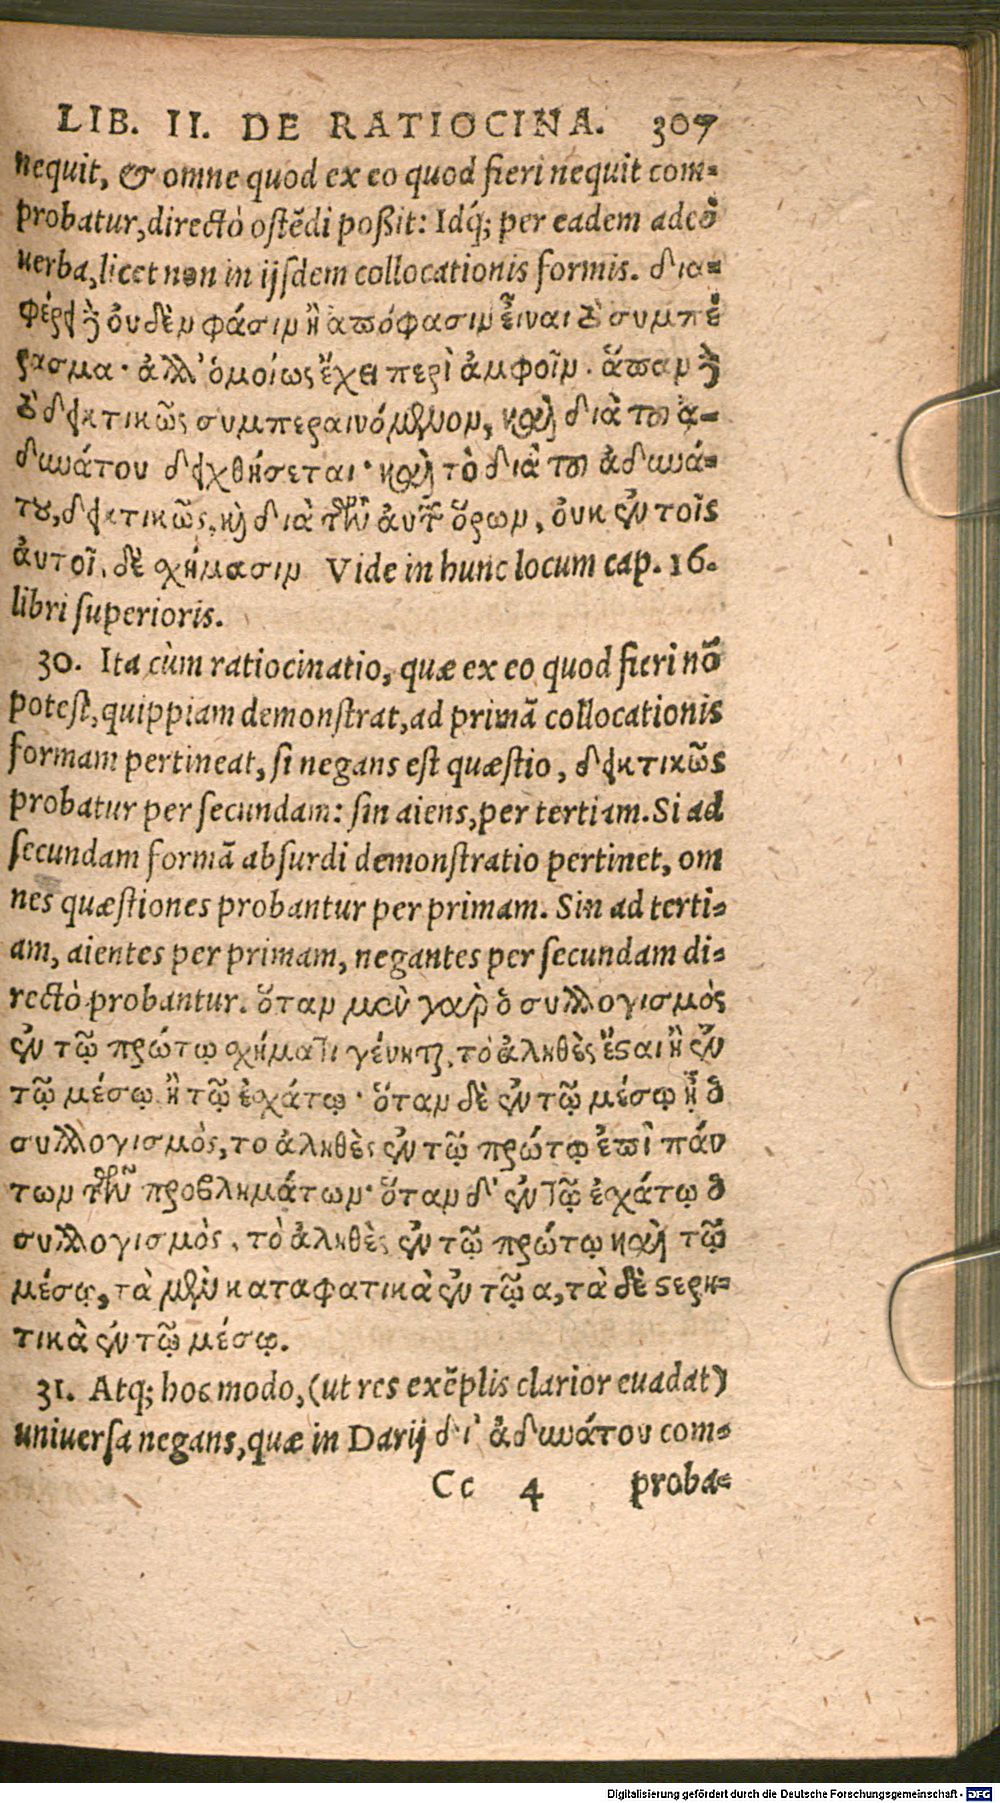 LIB. II. DE RATIOCINA. 307
nequit, & omne quod ex eo quod fieri nequit com-
probatur, directò ostẽdi poßit: Idq́; per eadem adeò
uerba, licet non in ijsdem collocationis formis. δια-
φέρει ἢ οὐδὲν φάσιν ἢ ἀπόφασιν εἶναι τὸ συμπέ
ρασμα· ἀλλ' ὁμοίως ἔχει περὶ ἀμφοῖν. ἅπαν ἢ
τὸ δεικτικῶς συμπεραινόμενον, καὶ διὰ τοῦ ἀ-
δυνάτου δειχθήσεται· καὶ τὸ διὰ τοῦ ἀδυνά-
του, δεικτικῶς, κὶ διὰ τῶν ἀυτῶν ὅρων, ὀυκ ἐν τοῖς
ἀυτοῖς δὲ σχήμασιν Vide in hunc locum cap. 16.
libri superioris.
30. Ita cùm ratiocinatio, quæ ex eo quod fieri nõ
potest, quippiam demonstrat, ad primã collocationis
formam pertineat, si negans est quæstio, δεικτικῶς
probatur per secundam: sin aiens, per tertiam. Si ad
secundam formã absurdi demonstratio pertinet, om
nes quæstiones probantur per primam. Sin ad terti-
am, aientes per primam, negantes per secundam di-
rectò probantur. ὅταν μὲν γαρ ὁ συλλογισμὸς
ἐν τῷ πρώτῳ σχήματι γένηται, τὸ ἀληθὲς ἔσαι ἢ ἐν
τῷ μέσῳ ἢ τῷ ἐσχάτῳ· ὅταν δὲ ἐν τῷ μέσῳ ᾖ ὁ
συλλογισμὸς, το ἀληθὲς ἐν τῷ πρώτῳ ἐπὶ πάν
των τῶν προβλημάτων· ὅταν δ' ἐν τῷ ἐσχάτῳ ὁ
συλλογισμὸς, τὸ ἀληθὲς ἐν τῷ πρώτῳ καὶ τῷ
μέσῳ, τὰ μὲν καταφατικὰ ἐν τῷ α, τὰ δὲ στερη-
τικὰ ἐν τῷ μέσῳ.
31. Atq; hoc modo, (ut res exẽplis clarior euadat)
uniuersa negans, quæ in Darij δι' ἀδυνάτου com-
Cc 4 proba-
Digitalisierung gefördert durch die Deutsche Forschungsgemeinschaft - DFG